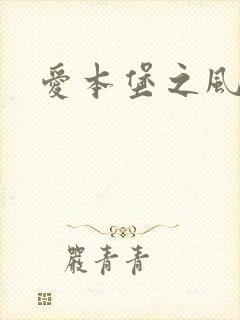 愛本堡之風
嚴青青